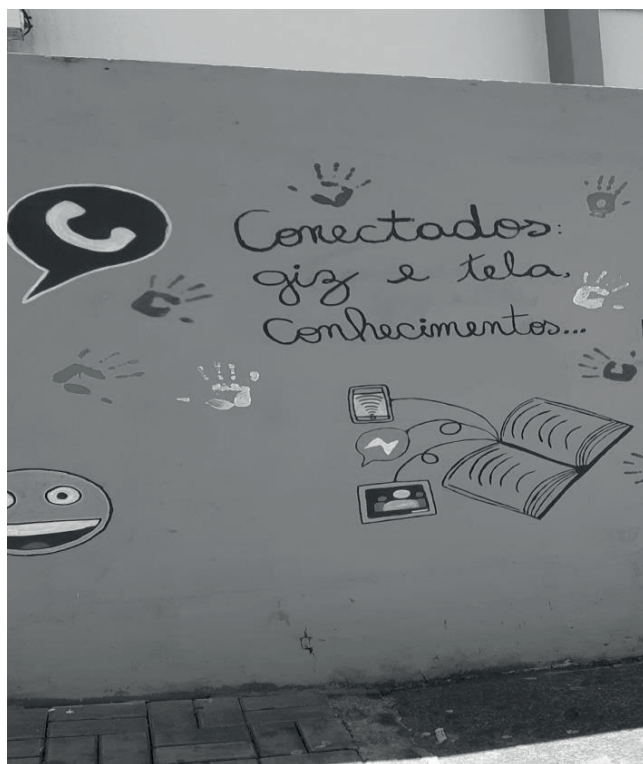 Conectados:
giz e tela,
Conhecimentos...